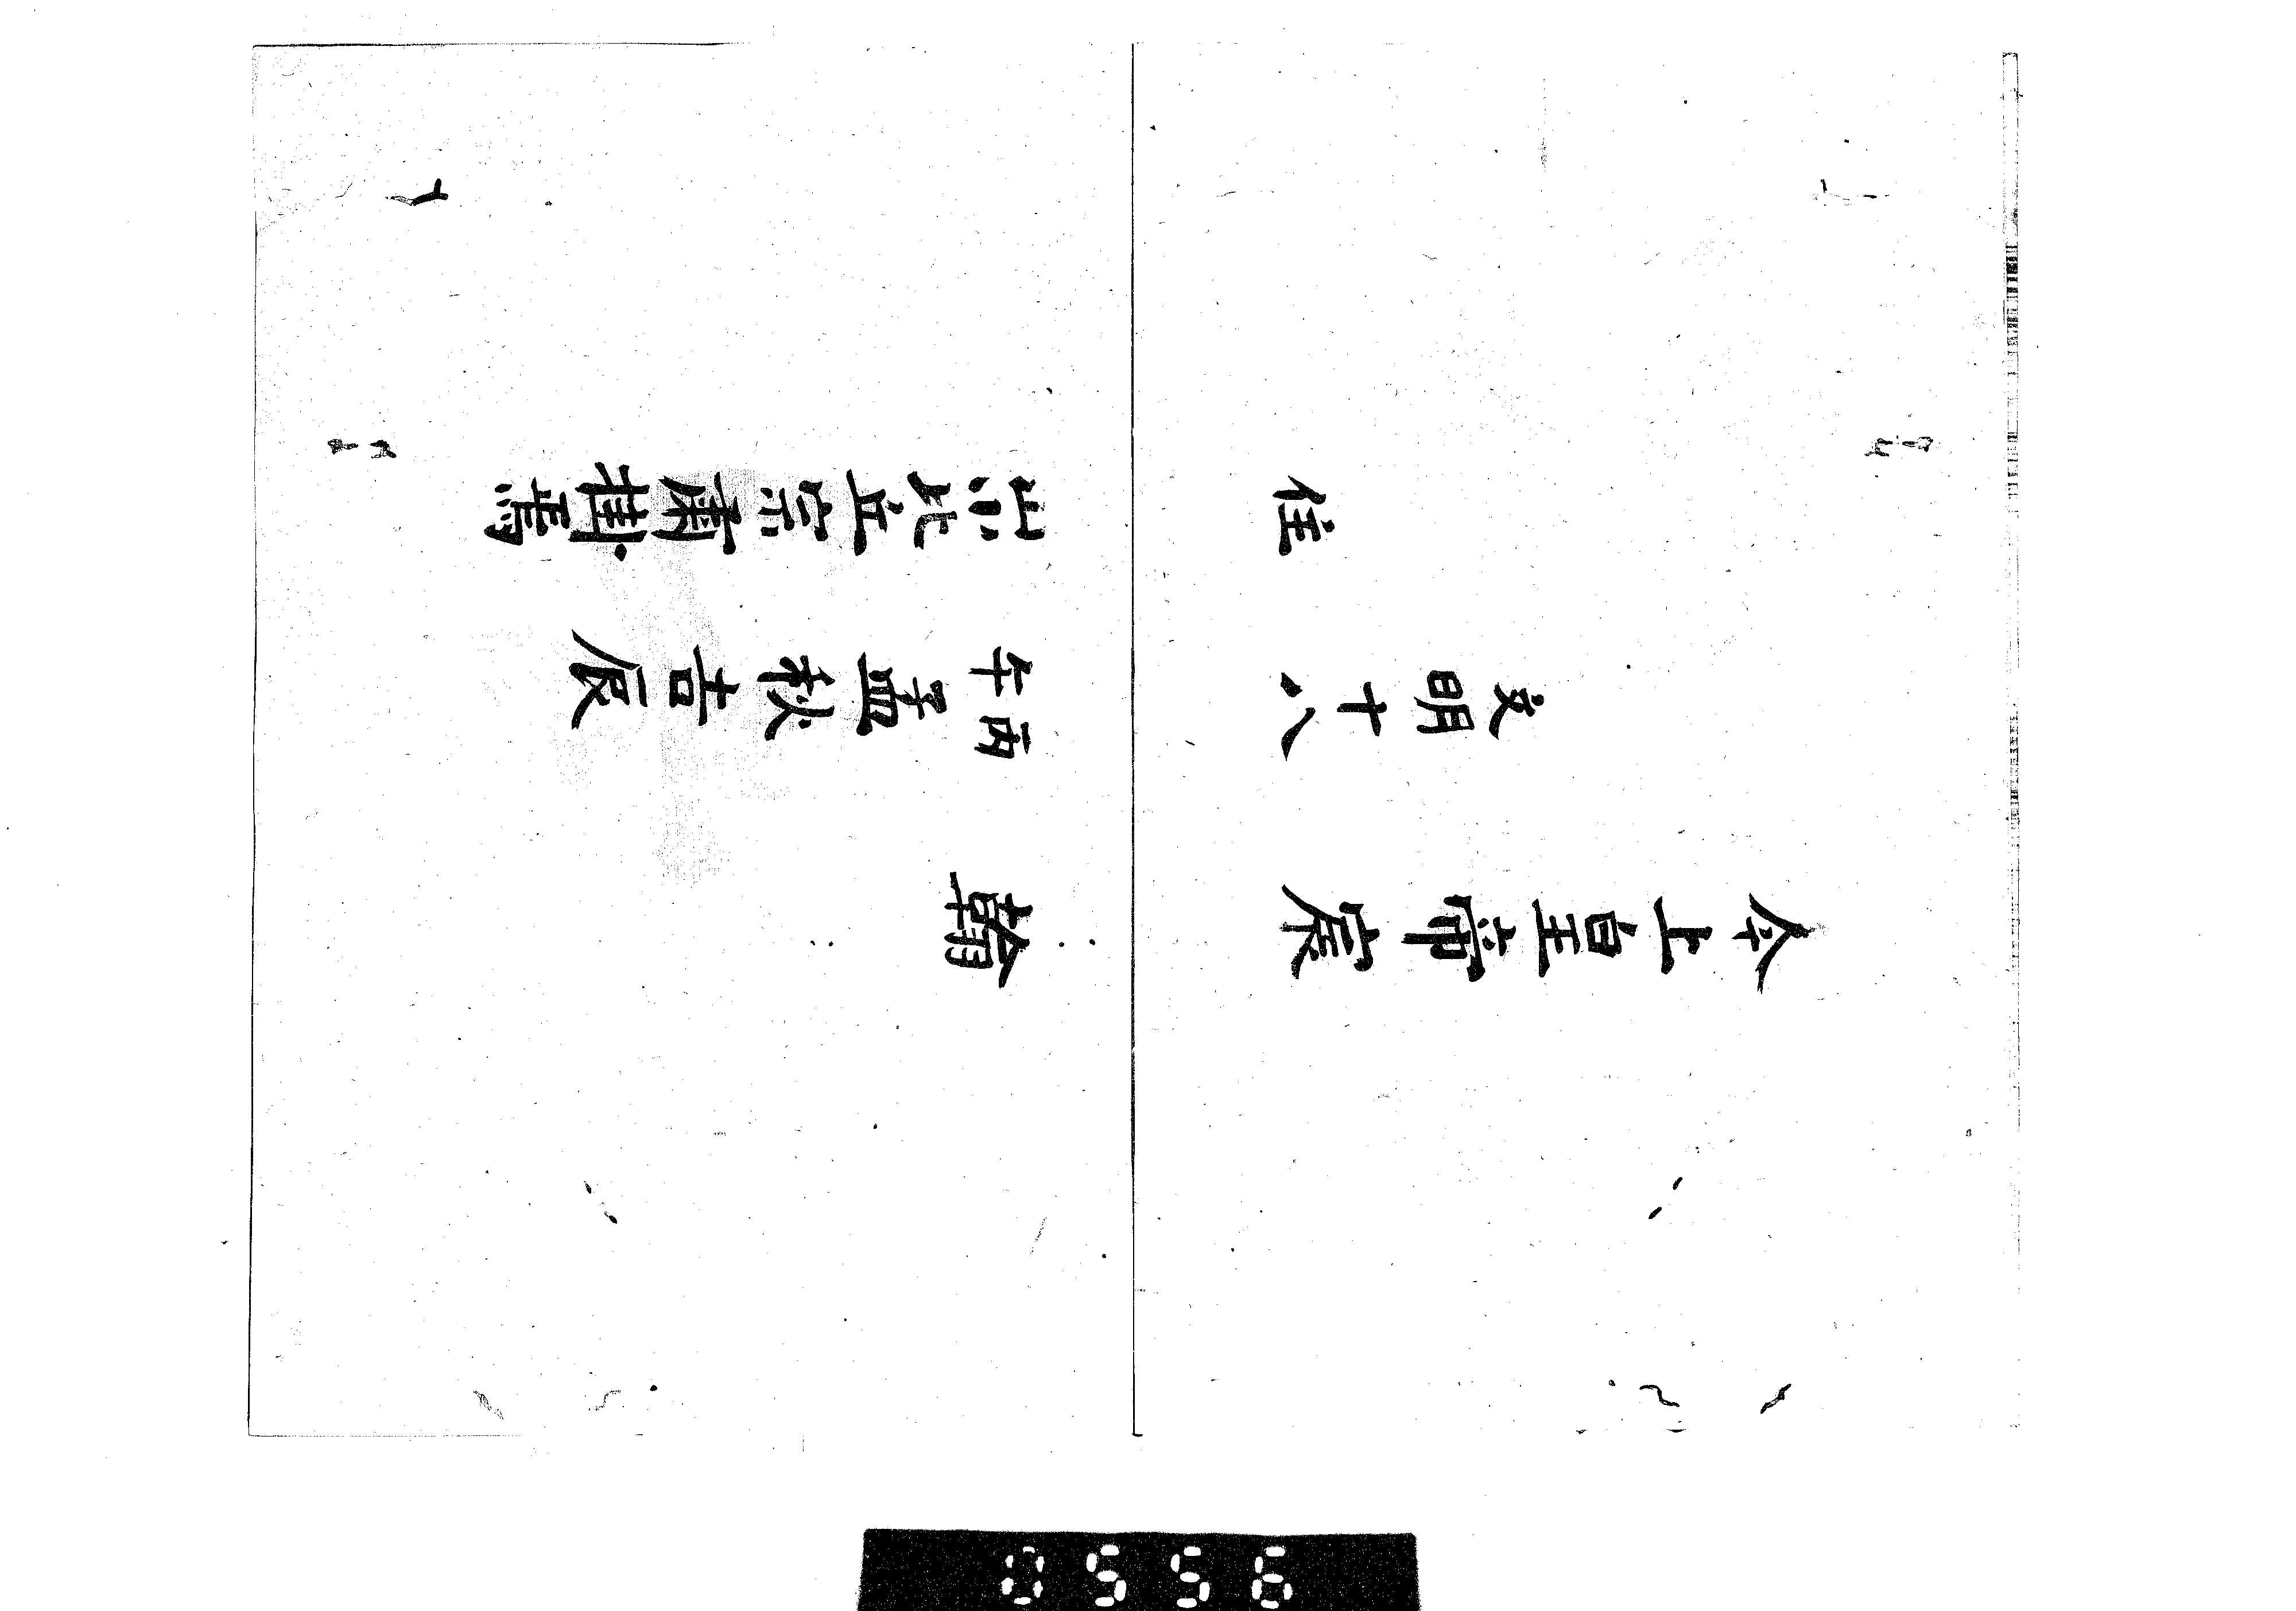 今上皇帝宸翰
文明十八丙午孟秋吉辰
住山小比丘宗焉
0556